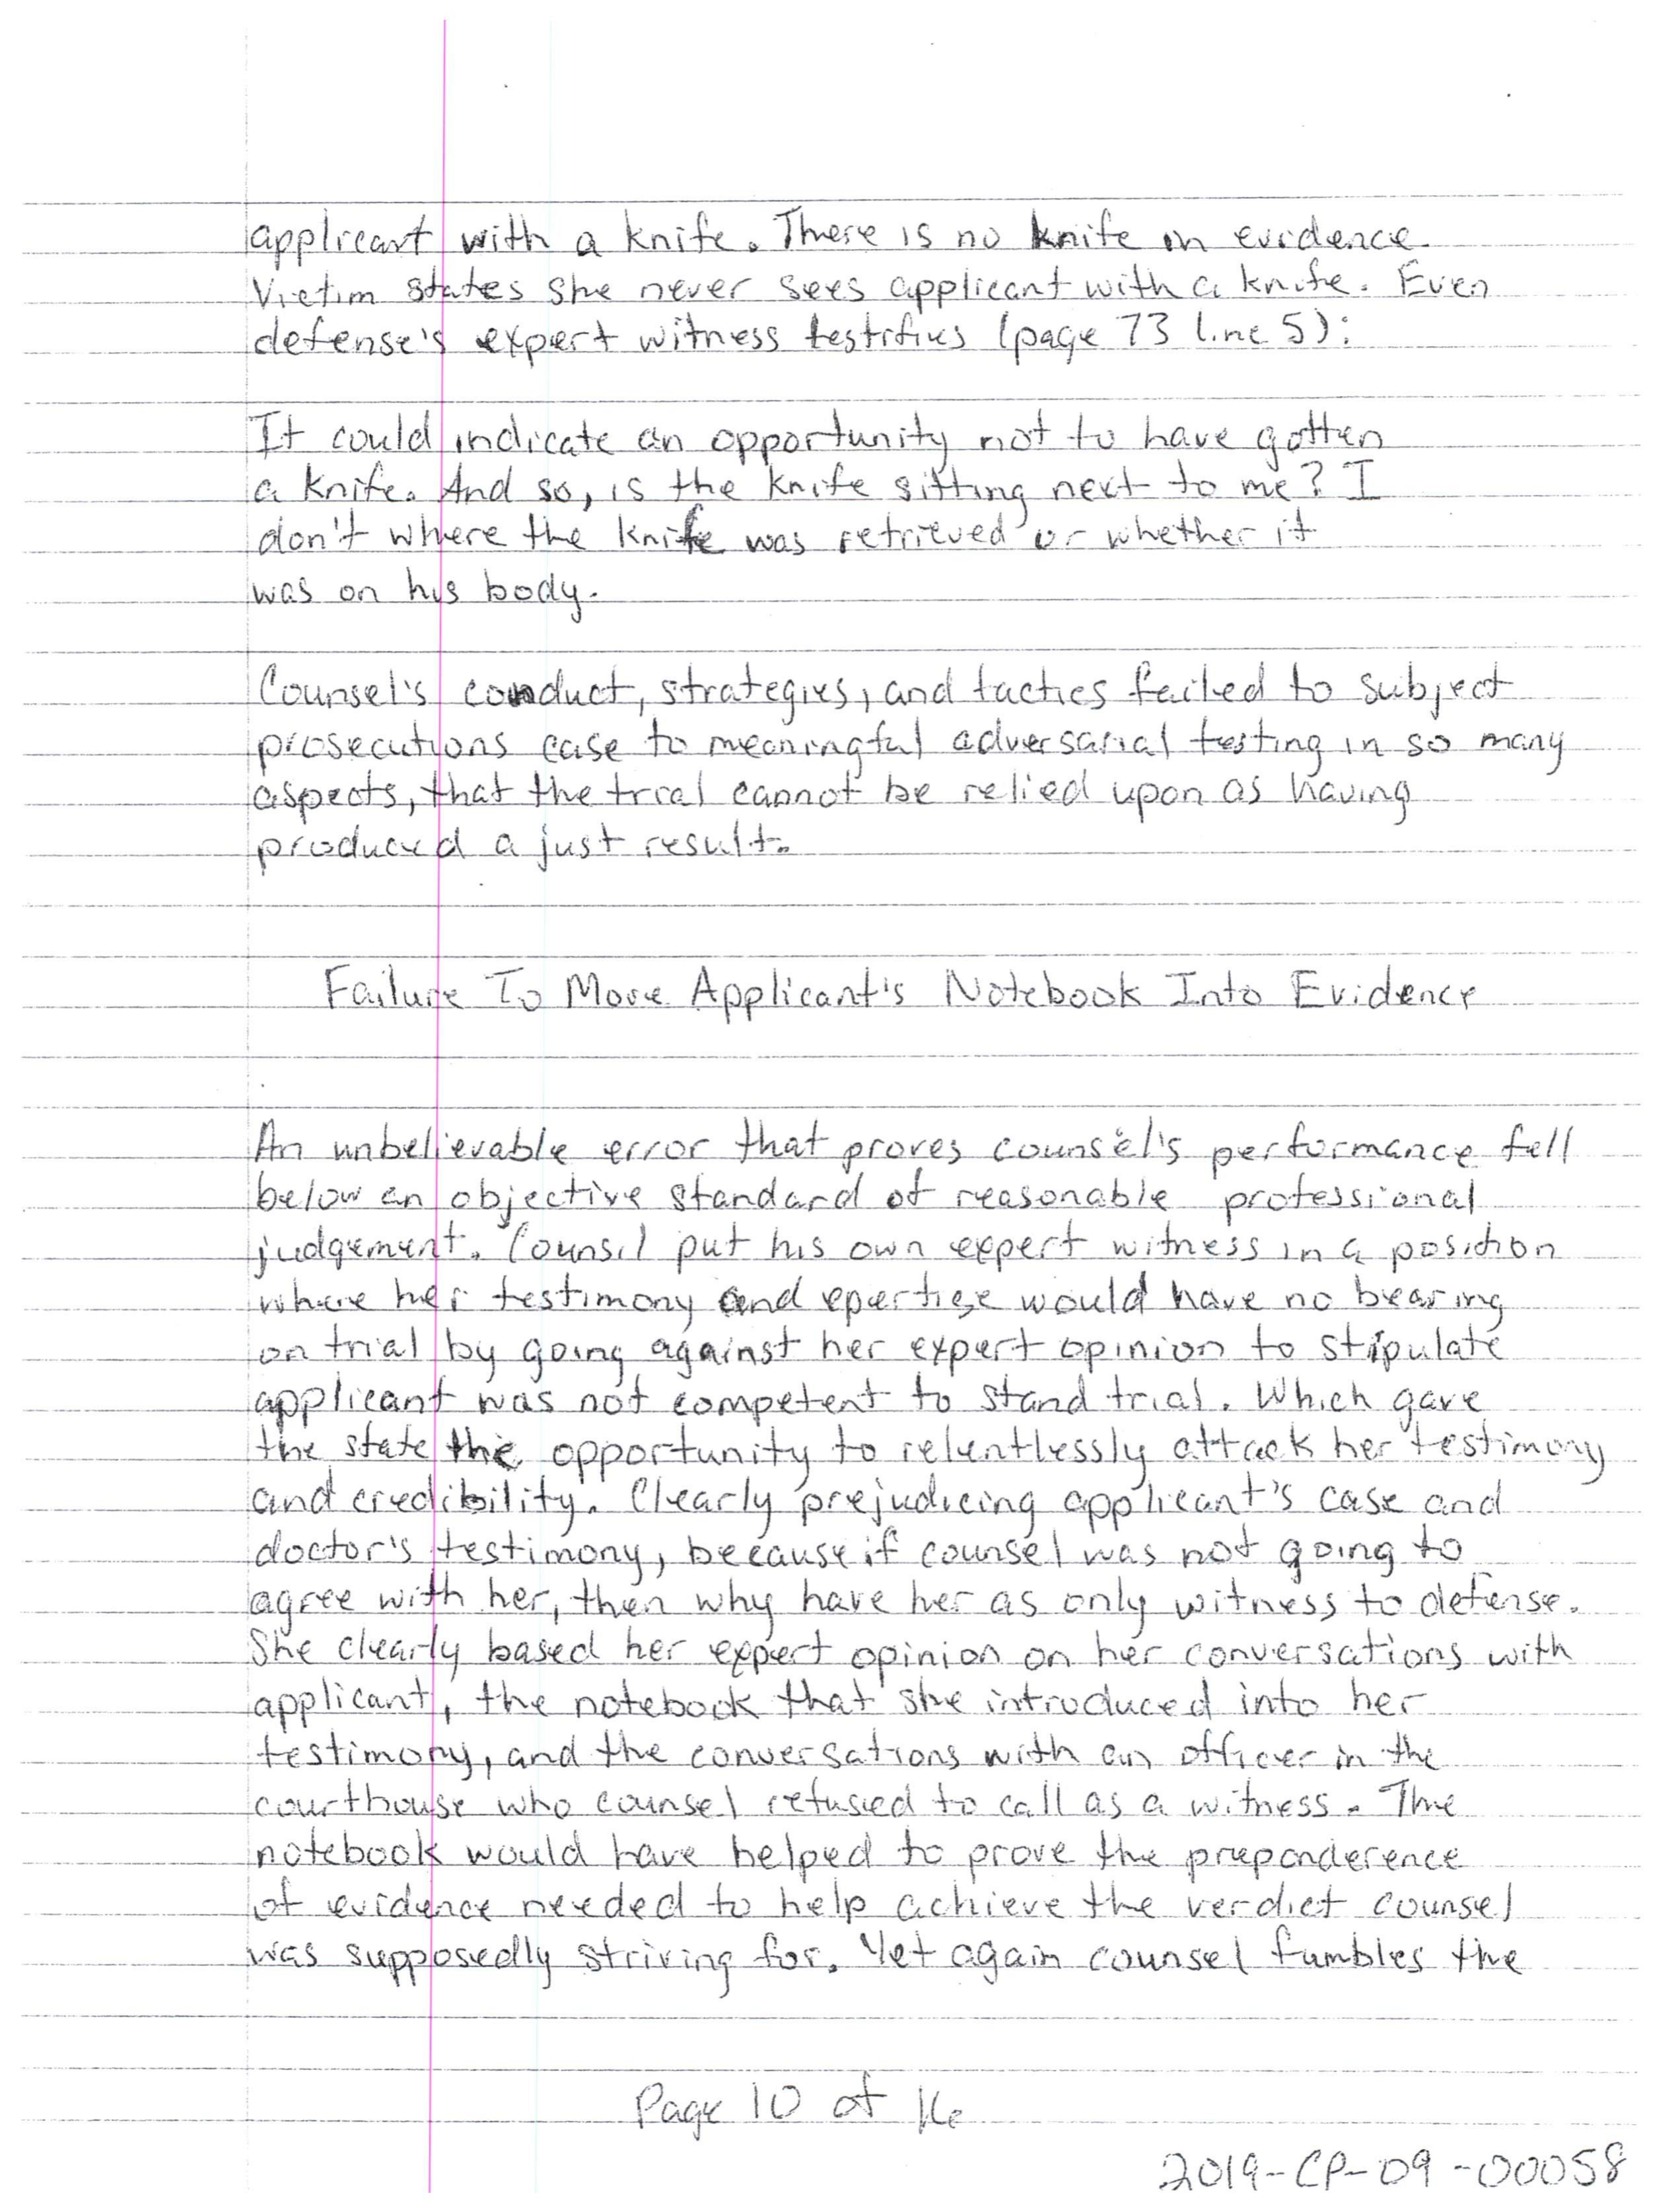 applicant with a knife. There is no knife in evidence.
Victim states she never sees applicant with a knife. Even
defense's expert witness testifies (page 73 line 5):
It could indicate an opportunity not to have gotten
a knife. And so, is the knife sitting next to me? I
don't where the knife was retrieved or whether it
was on his body.
Counsel's conduct, strategies, and tactics failed to subject
prosecutions case to meaningful adversarial testing in so many
aspects, that the trial cannot be relied upon as having
produced a just result.
Failure To Move Applicant's Notebook Into Evidence
An unbelievable error that proves counsel's performance fell
below an objective standard of reasonable professional
judgement. Counsel put his own expert witness in a position
where her testimony and epertise would have no bearing
on trial by going against her expert opinion to stipulate
applicant was not competent to stand trial. Which gave
the state the opportunity to relentlessly attack her testimony
and credibility. Clearly prejudicing applicant's case and
doctor's testimony, because if counsel was not going to
agree with her, then why have her as only witness to defense.
She clearly based her expert opinion on her conversations with
applicant, the notebook that she introduced into her
testimony, and the conversations with an officer in the
courthouse who counsel refused to call as a witness. The
notebook would have helped to prove the preponderence
of evidence needed to help achieve the verdict counsel
was supposedly striving for. Yet again counsel fumbles the
Page 10 of 16
2019-CP-09-00058